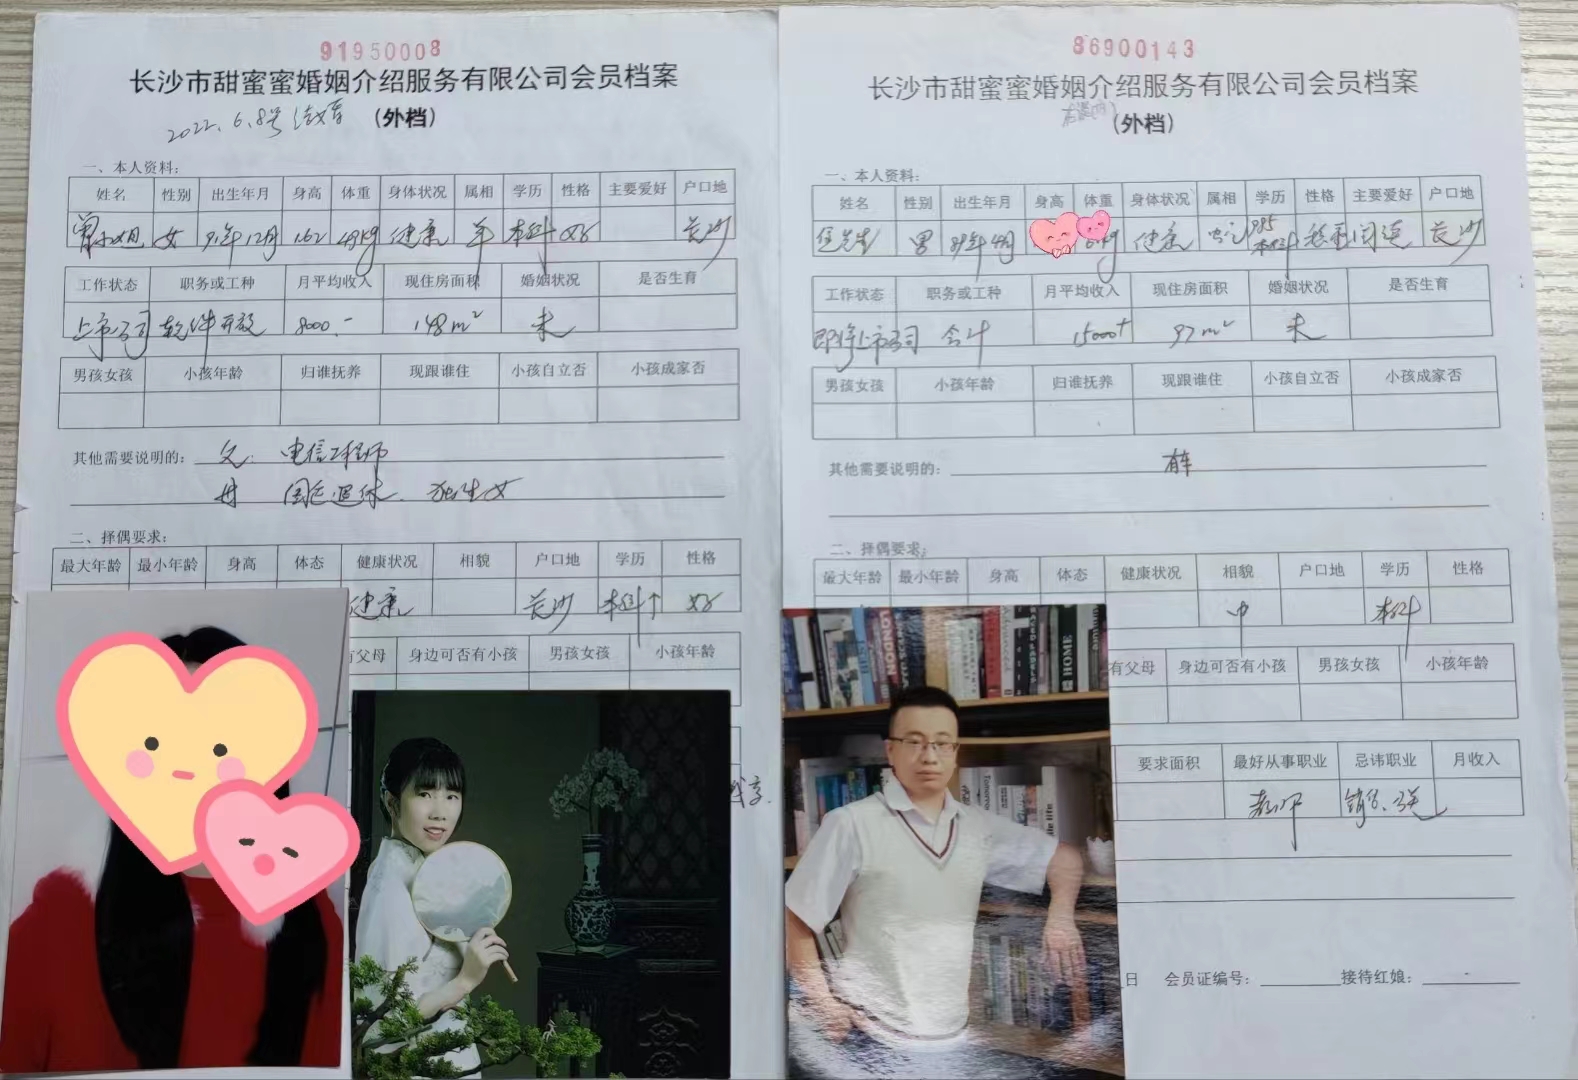 91950008
长沙市甜蜜蜜婚姻介绍服务有限公司会员档案
2022.6.8号
(外档)
一、本人资料:
姓名 性别 出生年月 身高 体重 身体状况 属相 学历 性格 主要爱好 户口地
曾小姐 女 91年12月 1.62 49kg 健康 羊 本科 好 长沙
工作状态 职务或工种 月平均收入 现住房面积 婚姻状况 是否生育
上市公司 软件开发 8000.- 148m² 未
男孩女孩 小孩年龄 归谁抚养 现跟谁住 小孩自立否 小孩成家否
其他需要说明的: 父: 电信工程师
母 国企退休. 独生女
二、择偶要求:
最大年龄 最小年龄 身高 体态 健康状况 相貌 户口地 学历 性格
健康 长沙 本科↑ 好
有父母 身边可否有小孩 男孩女孩 小孩年龄
86900143
长沙市甜蜜蜜婚姻介绍服务有限公司会员档案
(外档)
一、本人资料:
姓名 性别 出生年月 身高 体重 身体状况 属相 学历 性格 主要爱好 户口地
先生 男 89年4月 kg 健康 蛇 985本科 长沙
工作状态 职务或工种 月平均收入 现住房面积 婚姻状况 是否生育
即将上市公司 会计 15000+ 97m² 未
男孩女孩 小孩年龄 归谁抚养 现跟谁住 小孩自立否 小孩成家否
其他需要说明的: 有车
二、择偶要求:
最大年龄 最小年龄 身高 体态 健康状况 相貌 户口地 学历 性格
中 本科
有父母 身边可否有小孩 男孩女孩 小孩年龄
要求面积 最好从事职业 忌讳职业 月收入
教师 销售、
日 会员证编号: 接待红娘:
LONDON
HOME